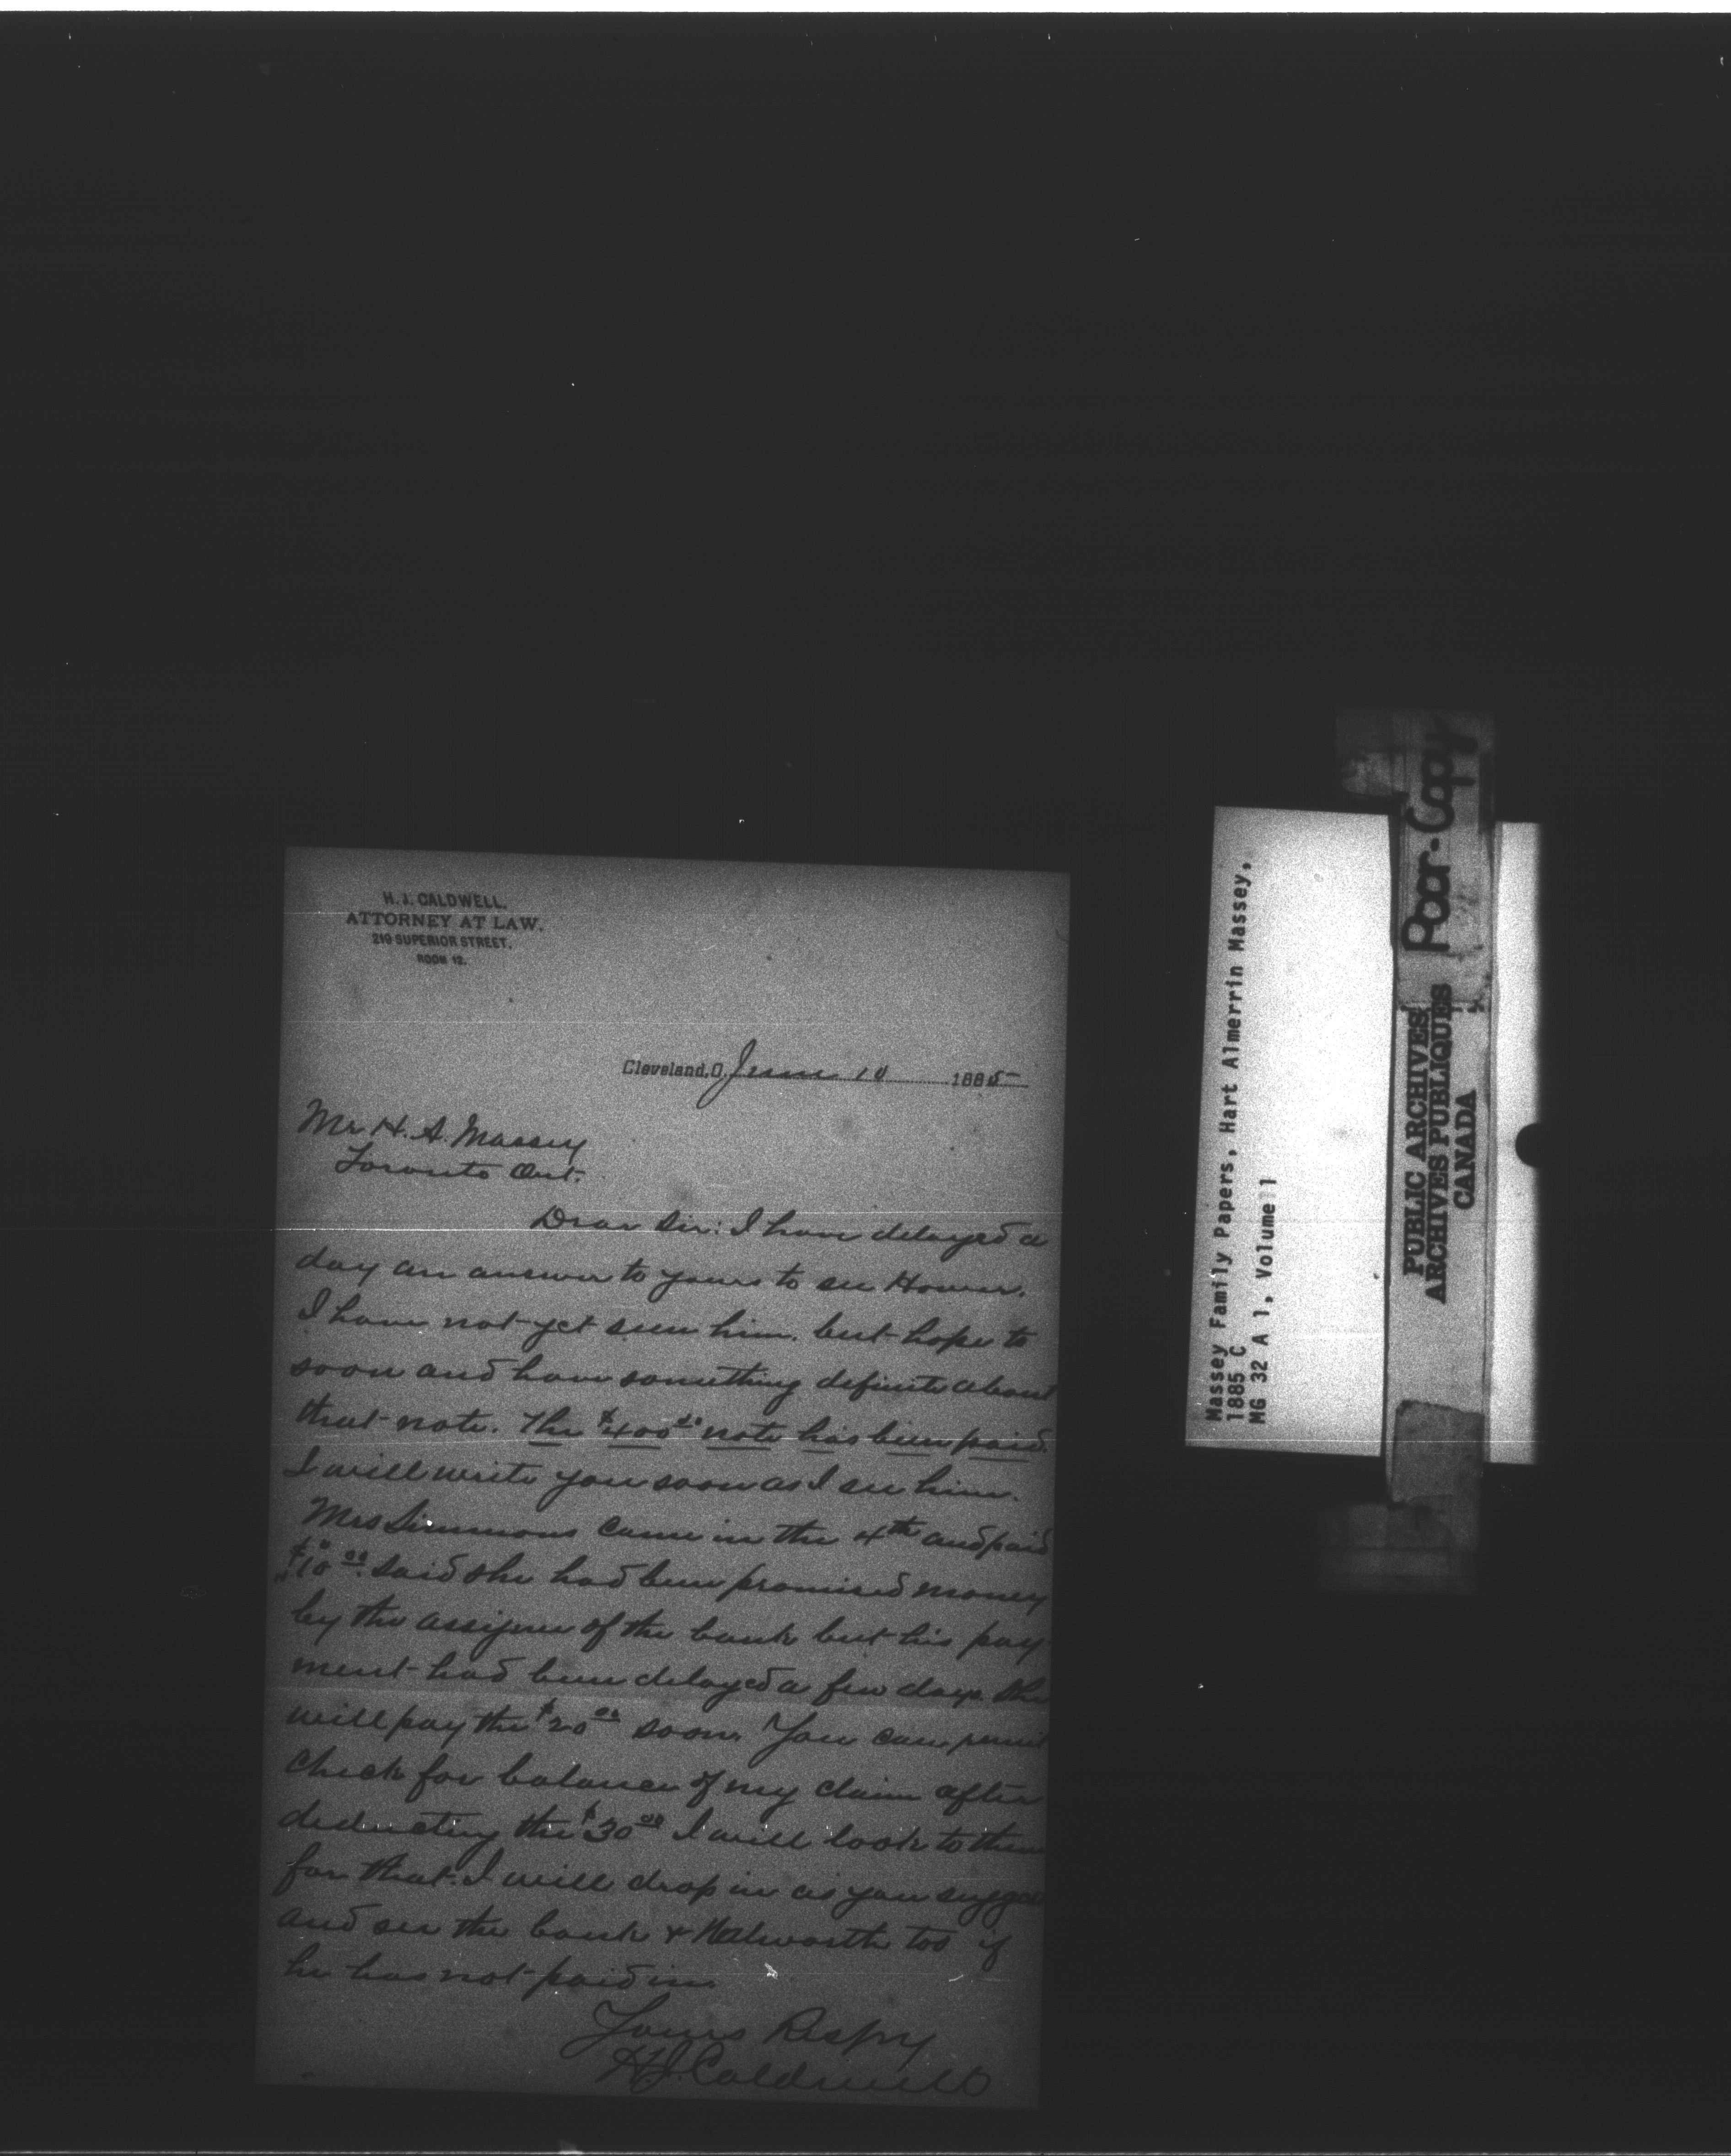 H. J. CALDWELL,
ATTORNEY AT LAW,
219 SUPERIOR STREET,
ROOM 12.
Cleveland, O. June 10 1885
Mr. H. A. Massey
Toronto Ont.
Dear Sir: I have delayed a
day an answer to yours to see Hower.
I have not yet seen him. but hope to
soon and have something definite about
that note. The $400 00 note has been paid.
I will write you soon as I see him.
Mrs Simmons came in the 4th and paid
$10 00. said she had been promised money
by the assignee of the bank but his pay-
ment had been delayed a few days. She
will pay the $20 00 soon. You can remit
check for balance of my claim after
deducting the $30 00 I will look to them
for that. I will drop in as you suggest
and see the bank & Walworth too if
he has not paid in.
Yours Respy
H. J. Caldwell
Massey Family Papers, Hart Almerrin Massey,
1885 C
MG 32 A 1, Volume 1
PUBLIC ARCHIVES
ARCHIVES PUBLIQUES
CANADA
Poor-Copy